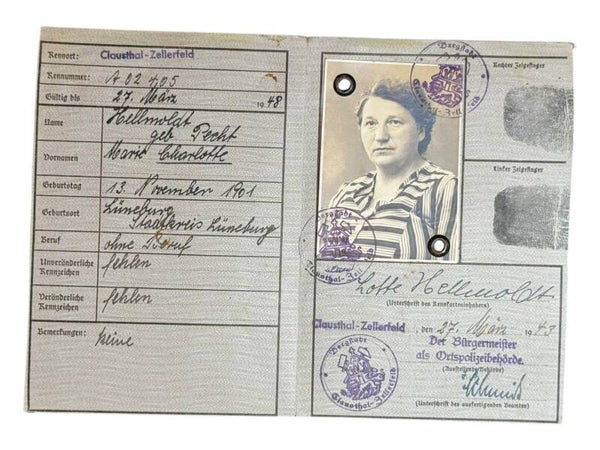 Kennort: Clausthal-Zellerfeld
Kennummer: A 02405
Gültig bis 27. März 1948
Name Hellmoldt
geb. Pecht
Vornamen Marie Charlotte
Geburtstag 13. November 1901
Geburtsort Lüneburg
Stadtkreis Lüneburg
Beruf ohne Beruf
Unveränderliche Kennzeichen fehlen
Veränderliche Kennzeichen fehlen
Bemerkungen: keine
Bergstadt
Clausthal-Zellerfeld
Rechter Zeigefinger
Linker Zeigefinger
Bergstadt
Clausthal-Zellerfeld
Lotte Hellmoldt
(Unterschrift des Kennkarteninhabers)
Clausthal-Zellerfeld, den 27. März 1943
Der Bürgermeister
als Ortspolizeibehörde.
(Ausstellende Behörde)
Bergstadt
Clausthal-Zellerfeld
Schmidt
(Unterschrift des ausfertigenden Beamten)